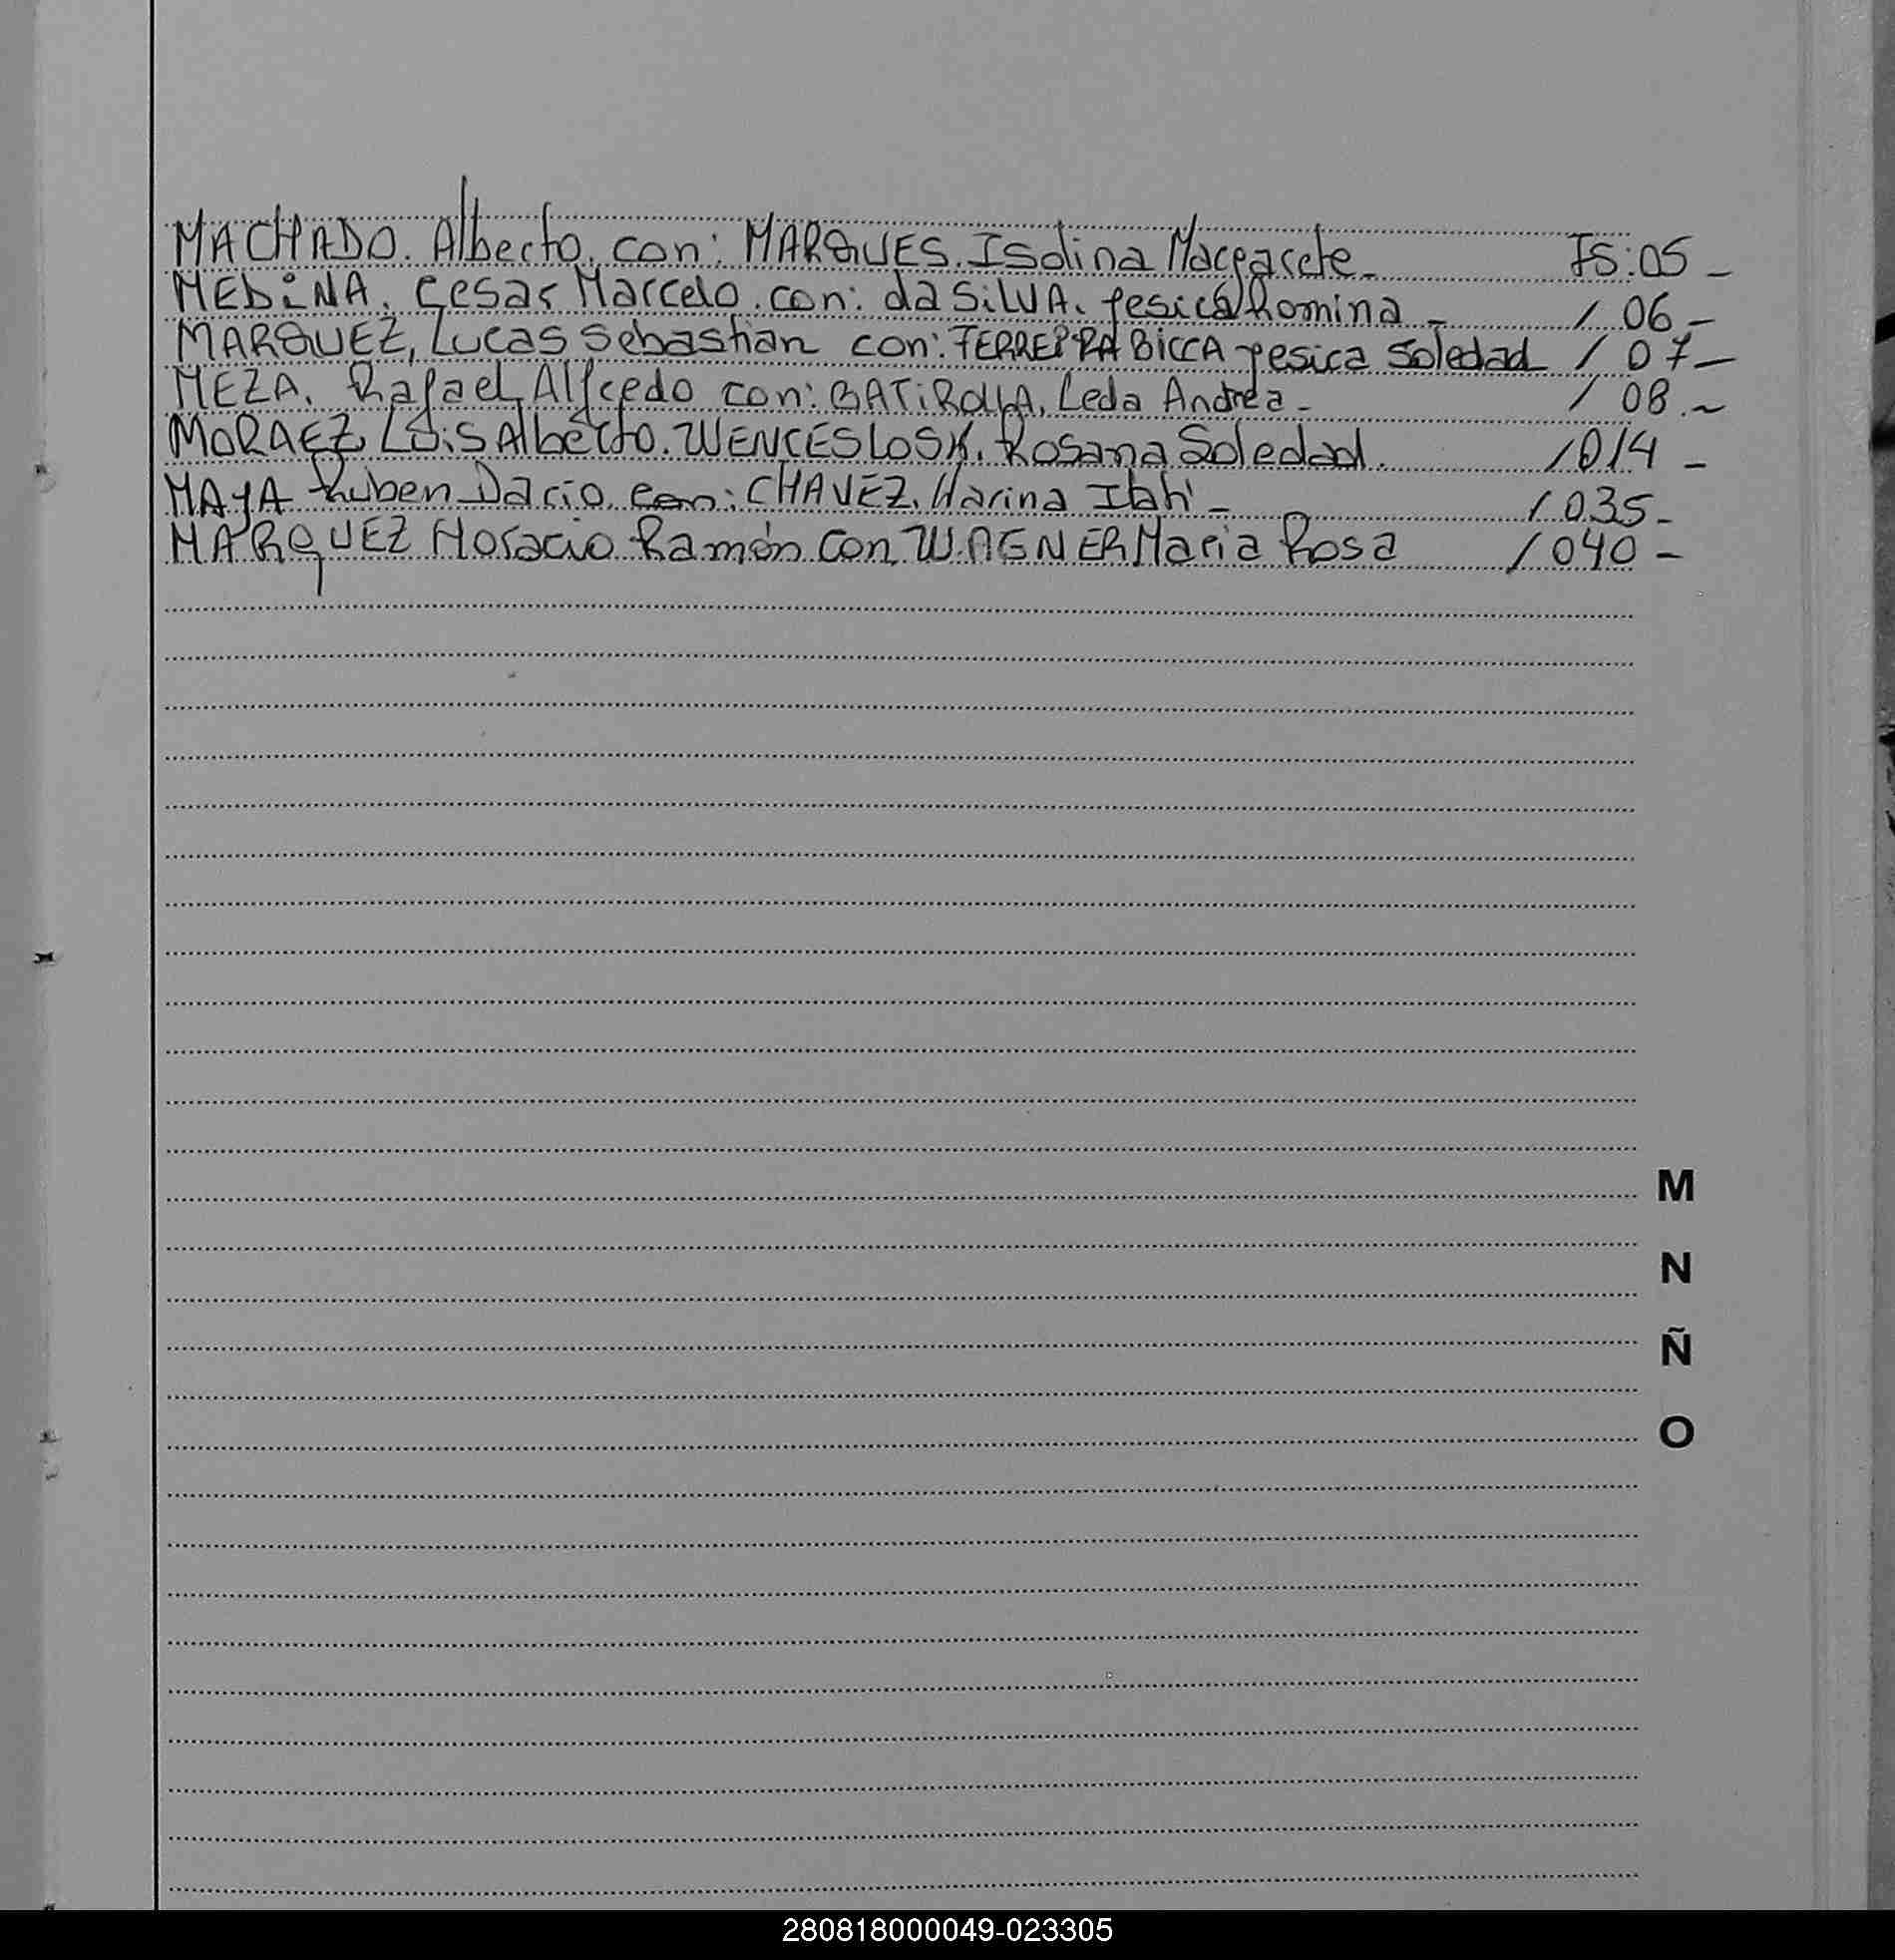 MACHADO. Alberto. con: MARQUES. Isolina Margarete - FS: 05 -
MEDiNA. Cesar Marcelo. con: da SiLVA. yesica Romina - / 06 -
MARQUEZ, Lucas Sebastian con: FERREIRA BiCCA yesica Soledad / 07 -
MEZA. Rafael Alfredo con: BATiRolla, Leda Andrea - / 08. ~
MORAEZ, Luis Alberto. WENCESLOSK. Rosana Soledad. / 014 -
MAyA Ruben Dario. con: CHAVEZ. Marina Itatí - / 035 -
MARQUEZ Horacio Ramón con WAGNER Maria Rosa / 040 -
M
N
Ñ
O
280818000049-023305